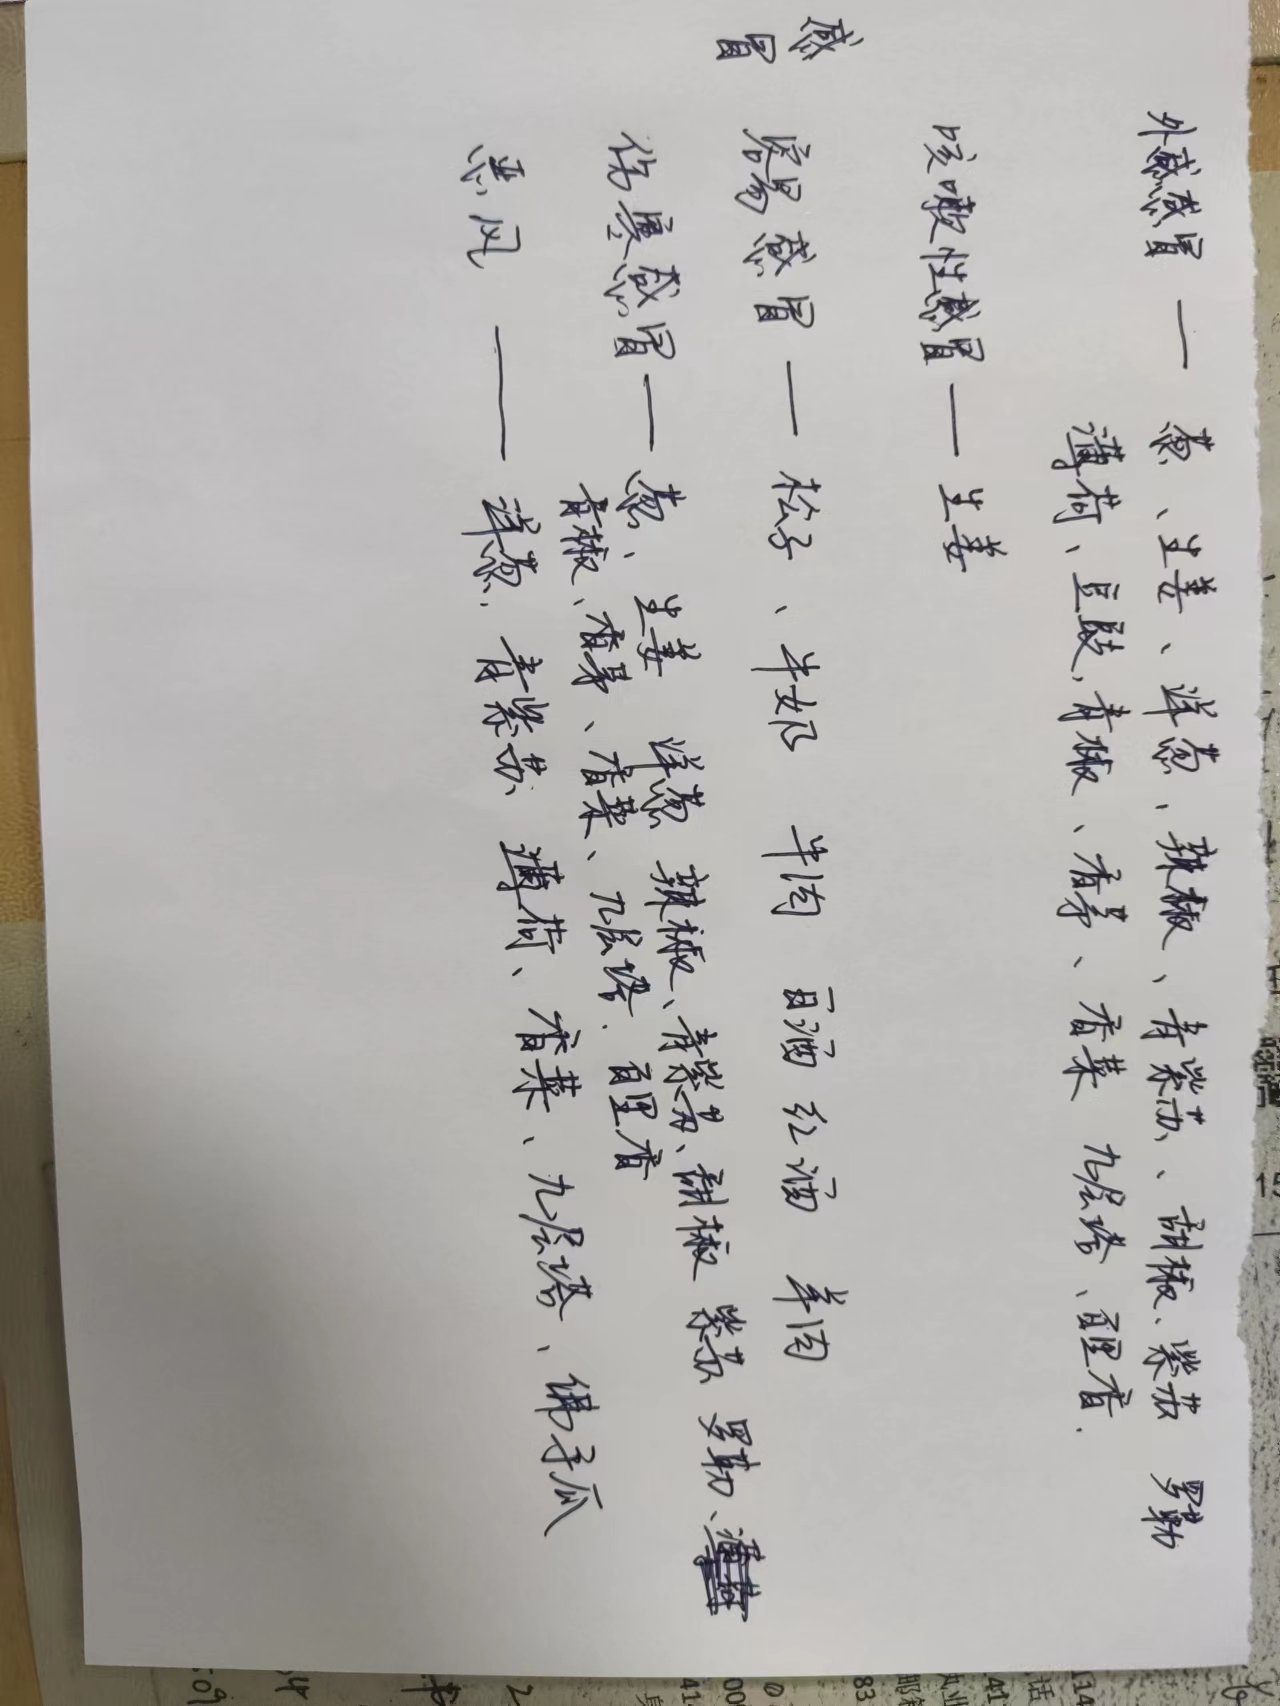 感冒
外感感冒 —— 葱、生姜、洋葱、辣椒、青紫苏、甜椒、紫苏 罗勒
薄荷、豆豉,青椒、香茅、香菜 九层塔、百里香.
咳嗽性感冒 —— 生姜
容易感冒 —— 松子、牛奶 牛肉 白油 红油 羊肉
伤寒感冒 —— 葱、生姜 洋葱 辣椒、青紫苏、甜椒 紫苏 罗勒、
青椒、香茅、香菜、九层塔. 百里香
恶风 —— 洋葱. 青紫苏 薄荷、香菜、九层塔、佛手瓜